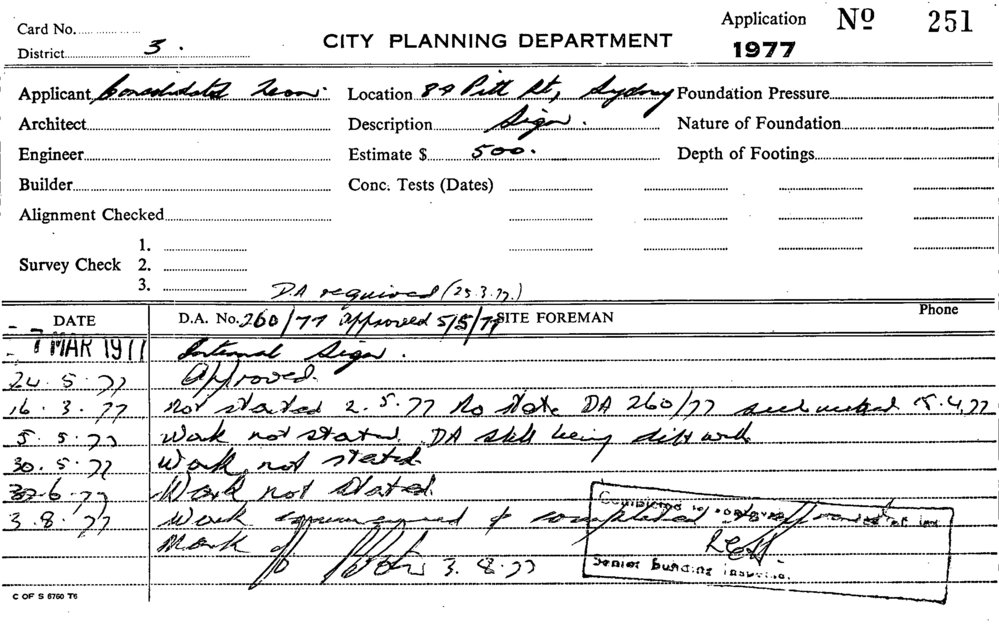 Card No.
District 3.
CITY PLANNING DEPARTMENT
Application Nº 251
1977
Applicant Consolidated Neon. Location Pitt St, Sydney Foundation Pressure
Architect Description Sign. Nature of Foundation
Engineer Estimate $ 500. Depth of Footings
Builder Conc. Tests (Dates)
Alignment Checked
1.
Survey Check 2.
3.
D.A required (25.3.77.)
DATE D.A. No. 260/77 approved 5/5/77 SITE FOREMAN Phone
MAR 1977 Internal Sign.
24.5.77 Approved.
16.3.77 Not started 2.5.77 No DA 260/77
5.5.77 Work not started. DA still being with
30.5.77 Work not started.
6.77 Work not started.
3.8.77 Work commenced & completed
3.8.77
Completed
Senior Building Inspector.
C OF S 6760 T6